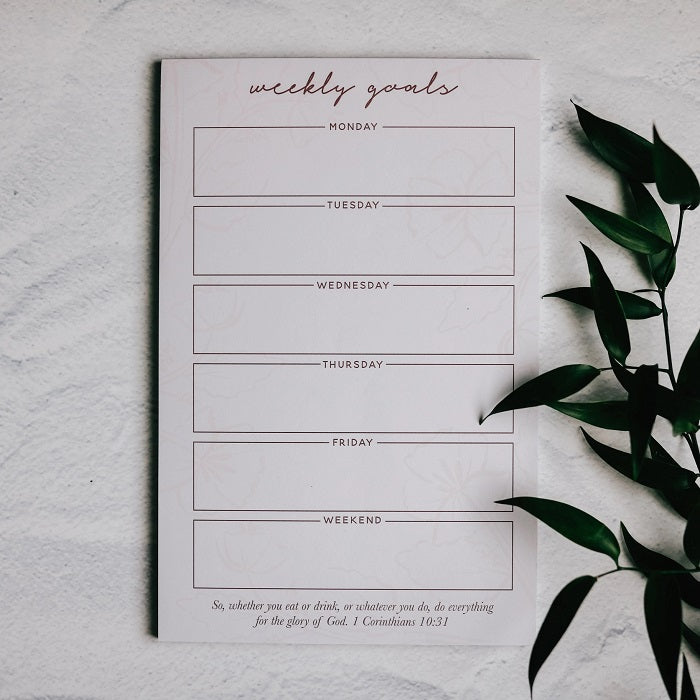 weekly goals
MONDAY
TUESDAY
WEDNESDAY
THURSDAY
FRIDAY
WEEKEND
So, whether you eat or drink, or whatever you do, do everything
for the glory of God. 1 Corinthians 10:31